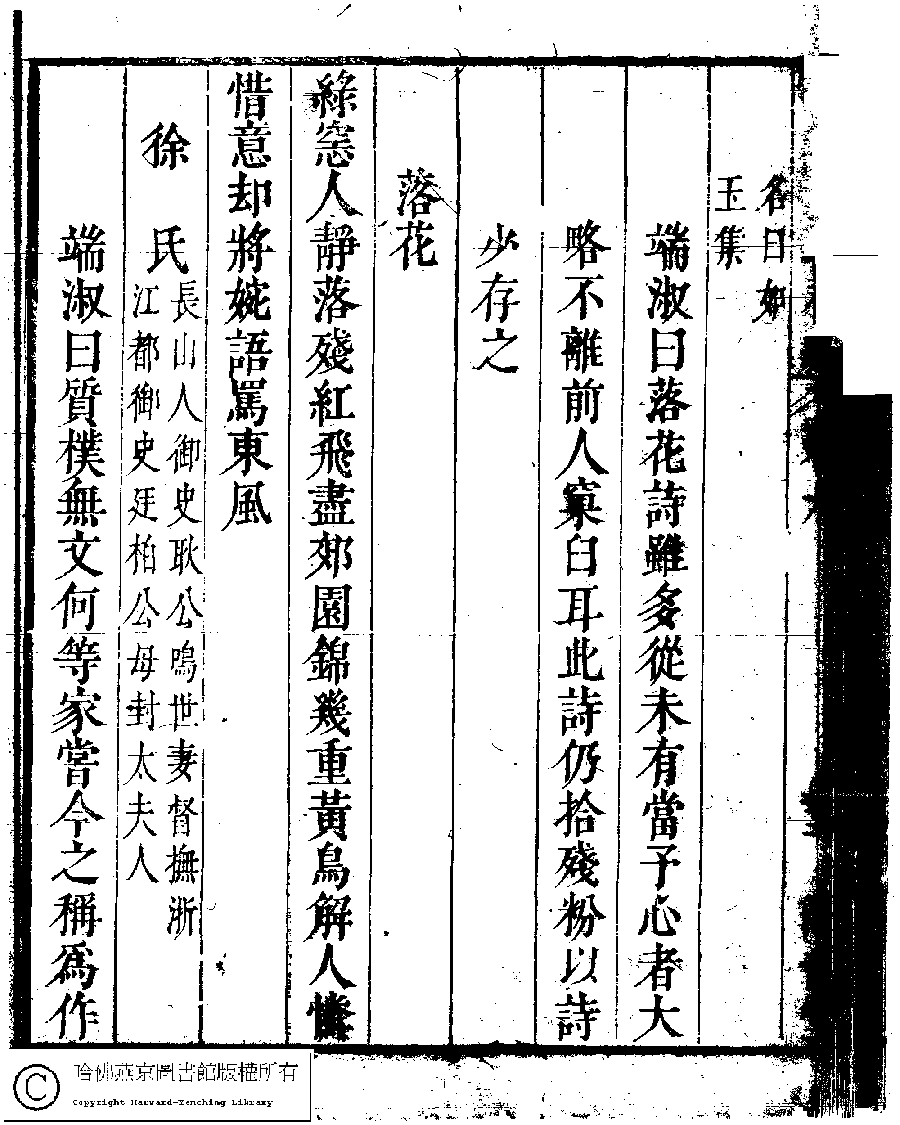 名曰如
玉集
端淑曰落花詩雖多從未有當予心者大
略不離前人窠臼耳此詩仍拾殘粉以詩
少存之
落花
綠窓人靜落殘紅飛盡郊園錦幾重黃鳥解人憐
惜意却將婉語罵東風
徐氏
長山人御史耿公鳴世妻督撫浙
江都御史廷柏公母封太夫人
端淑曰質樸無文何等家嘗今之稱為作
哈佛燕京圖書館版權所有
Copyright Harvard-Yenching Library